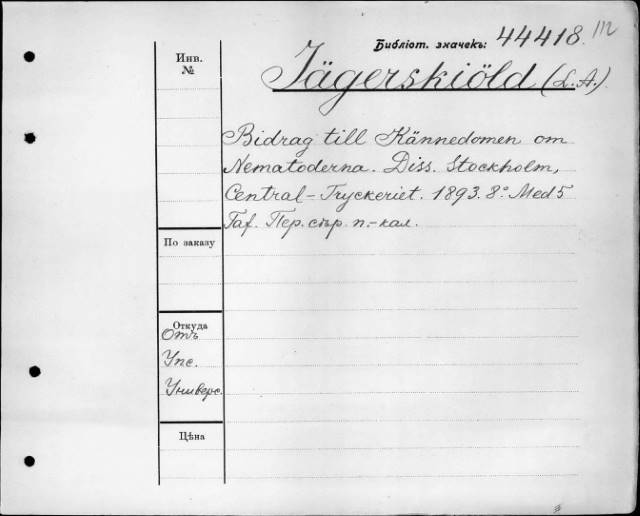 Библіот. значекъ: 44418.
Инв.
№
Jägerskiöld (L.A.).
Bidrag till Kännedomen om
Nematoderna. Diss. Stockholm,
Central-Tryckeriet. 1893. 8° Med 5
Taf. Пер. стр. п.-кал.
По заказу
Откуда
Отъ
Упс.
Универс.
Цѣна